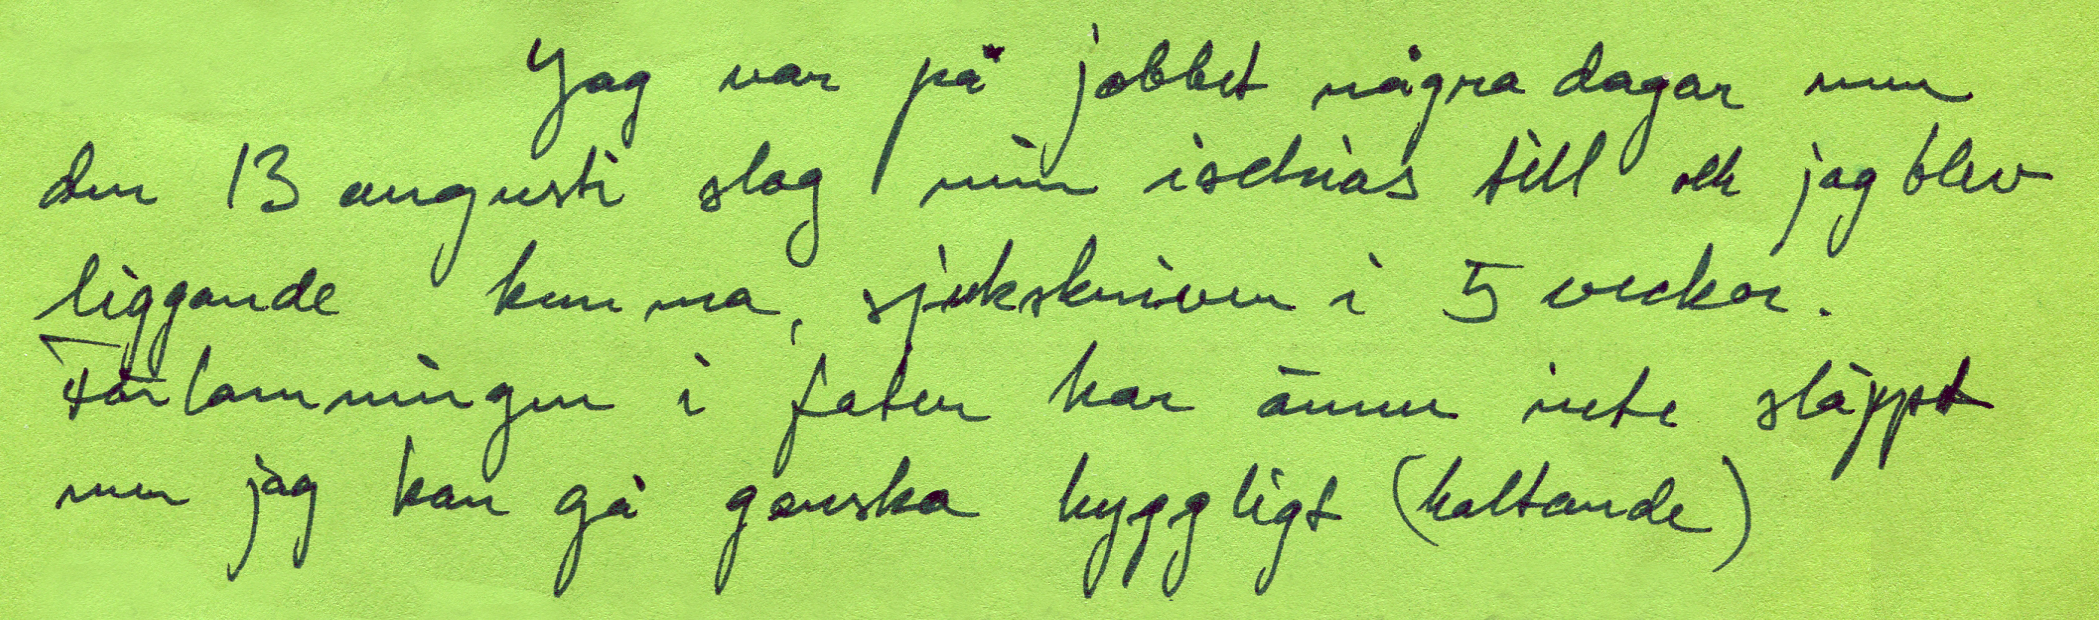 Jag var på jobbet några dagar men
den 13 augusti slog min ischias till och jag blev
liggande hemma, sjukskriven i 5 veckor.
Förlamningen i foten har ännu inte släppt
men jag kan gå ganska hyggligt (haltande)